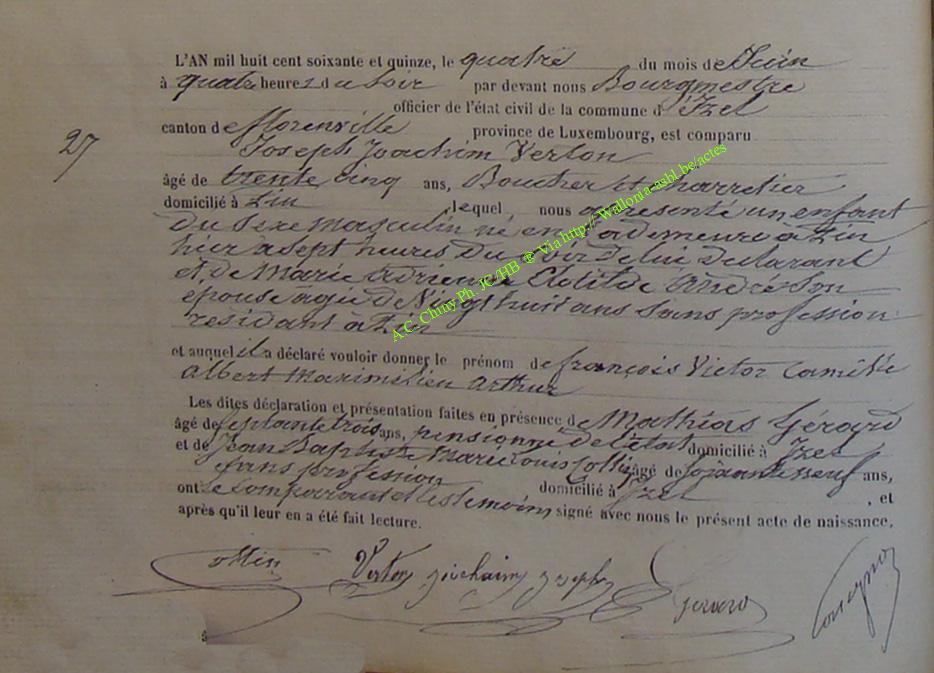 L'AN mil huit cent soixante et quinze, le quatre du mois de Juin
à quatre heures du Soir par devant nous Bourgmestre
officier de l'état civil de la commune d'Izel
27
canton de florenville province de Luxembourg, est comparu
Joseph Joachim Verton
âgé de trente cinq ans, Boucher et charretier
domicilié à lequel nous a présenté un enfant
du Sexe masculin né en Sa demeure à
hier a sept heures du Soir De lui declarant
et de Marie Adrienne Clotilde André Son
épouse agée de Vingt huit ans Sans profession
résidant à
et auquel il a déclaré vouloir donner le prénom de françois Victor Camille
Albert Maximilien Arthur
Les dites déclaration et présentation faites en présence de Mathias Gérard
âgé de Septante trois ans, pensionné de l'état domicilié à Izel
et de Jean Baptiste Marie Louis âgé de Soixante neuf ans,
Sans profession domicilié à Izel , et
ont le Comparant et les temoins signé avec nous le présent acte de naissance,
après qu'il leur en a été fait lecture.
Verton Joichaim Joseph Gerard
A.C. Chiny Ph. JC/HB ® Via http://Wallonia-asbl.be/actes